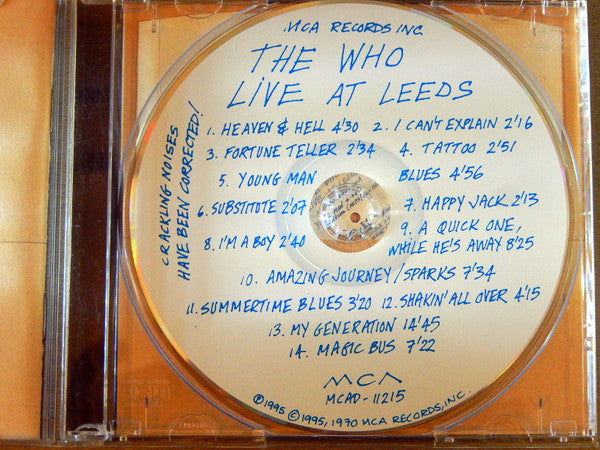 MCA RECORDS INC.
THE WHO
LIVE AT LEEDS
CRACKLING NOISES
HAVE BEEN CORRECTED!
1. HEAVEN & HELL 4'30 2. I CAN'T EXPLAIN 2'16
3. FORTUNE TELLER 2'34 4. TATTOO 2'51
5. YOUNG MAN BLUES 4'56
6. SUBSTITUTE 2'07 7. HAPPY JACK 2'13
8. I'M A BOY 2'40 9. A QUICK ONE,
WHILE HE'S AWAY 8'25
10. AMAZING JOURNEY/SPARKS 7'34
11. SUMMERTIME BLUES 3'20 12. SHAKIN' ALL OVER 4'15
13. MY GENERATION 14'45
14. MAGIC BUS 7'22
MCA
MCAD-11215
℗1995 ©1995, 1970 MCA RECORDS, INC.